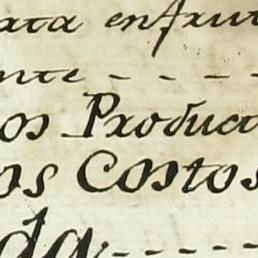 ata enfrut
nte - - - -
os Product
os Costos
da - - - - -